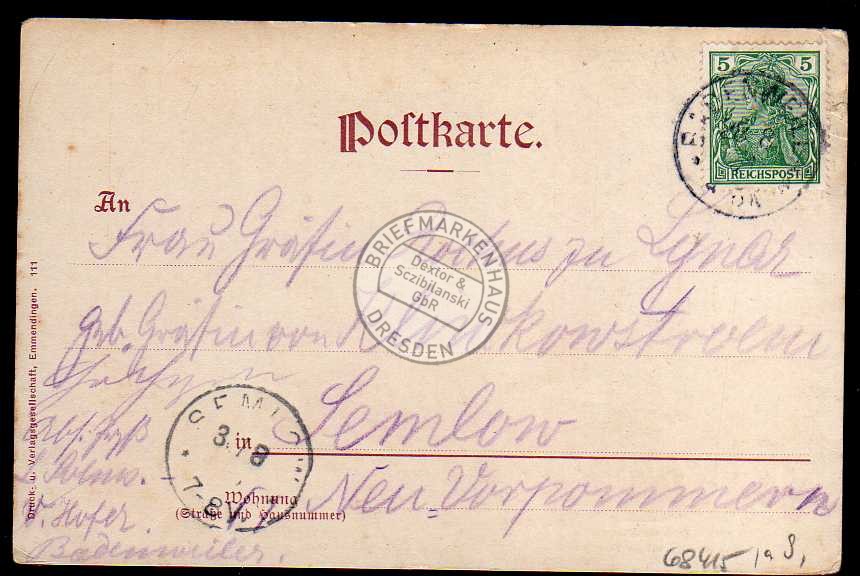 Postkarte.
5 5
REICHSPOST
BADENWEILER
An
Frau Gräfin zu Lynar
geb. Gräfin von
in Semlow
Neu-Vorpommern
Wohnung
(Straße und Hausnummer)
SEMLOW
3. 8
7-8
V. Hofer.
Badenweiler.
Druck- u. Verlagsgesellschaft, Emmendingen. 111
BRIEFMARKENHAUS
Dextor &
Sczibilanski
GbR
DRESDEN
68415